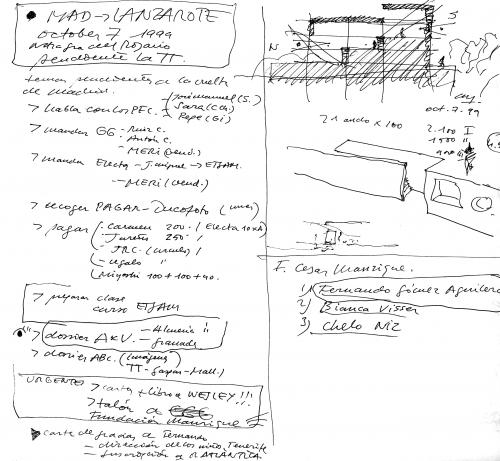 MAD → LANZAROTE
october 7 1999
Ntra Sra del Rosario
pendiente la TT.
temas pendientes a la vuelta
de Madrid.
> habla con los PFC.
- Josemanuel (S.)
- Sara (CCh.)
> Pepe (Gi)
> mandar GG - Ruiz C.
- Antón C.
- MERI (vend.)
> mandar Electa - J. miguel → ETSAM.
- MERI (vend.)
> recoger PAGAR - Ducofoto (lunes)
> pagar
- Carmen 200. / Electa 10x
- 250 /
- JRC. (
- regalo "
Miyoshi 100 + 100 + 40.
> preparar clase
curso ETSAM
> dossier A&V.
- Almería "
- granada
> dossier ABC. (imágenes)
TT - gaspar - Mall.)
URGENTE > carta + libro a WESLEY!!!
> talón a
Fundación Manrique
> carta de gracias a Fernando
- dirección de los niño Tenerife
- suscripción a la ATLANTICA.
N
S
oct. 7. 99
21 ancho x 100
2.100 I
1900 "
F. Cesar Manrique.
1) Fernando Gómez Aguilera
2) Bianca Visser
3) Chelo Niz